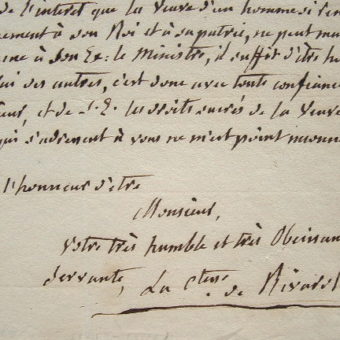 de l'interet que la veuve d'un homme si
à son Roi et à sa patrie, ne peut
à Son Ex: le Ministre, il suffit d'être
des autres, c'est donc avec toute confiance
et de S. E. les droits sacrés de la veuve
qui s'adressent à vous ne m'est point
l'honneur d'être
Monsieur,
votre très humble et très Obeissan
servante, La Ctesse de Rivarol